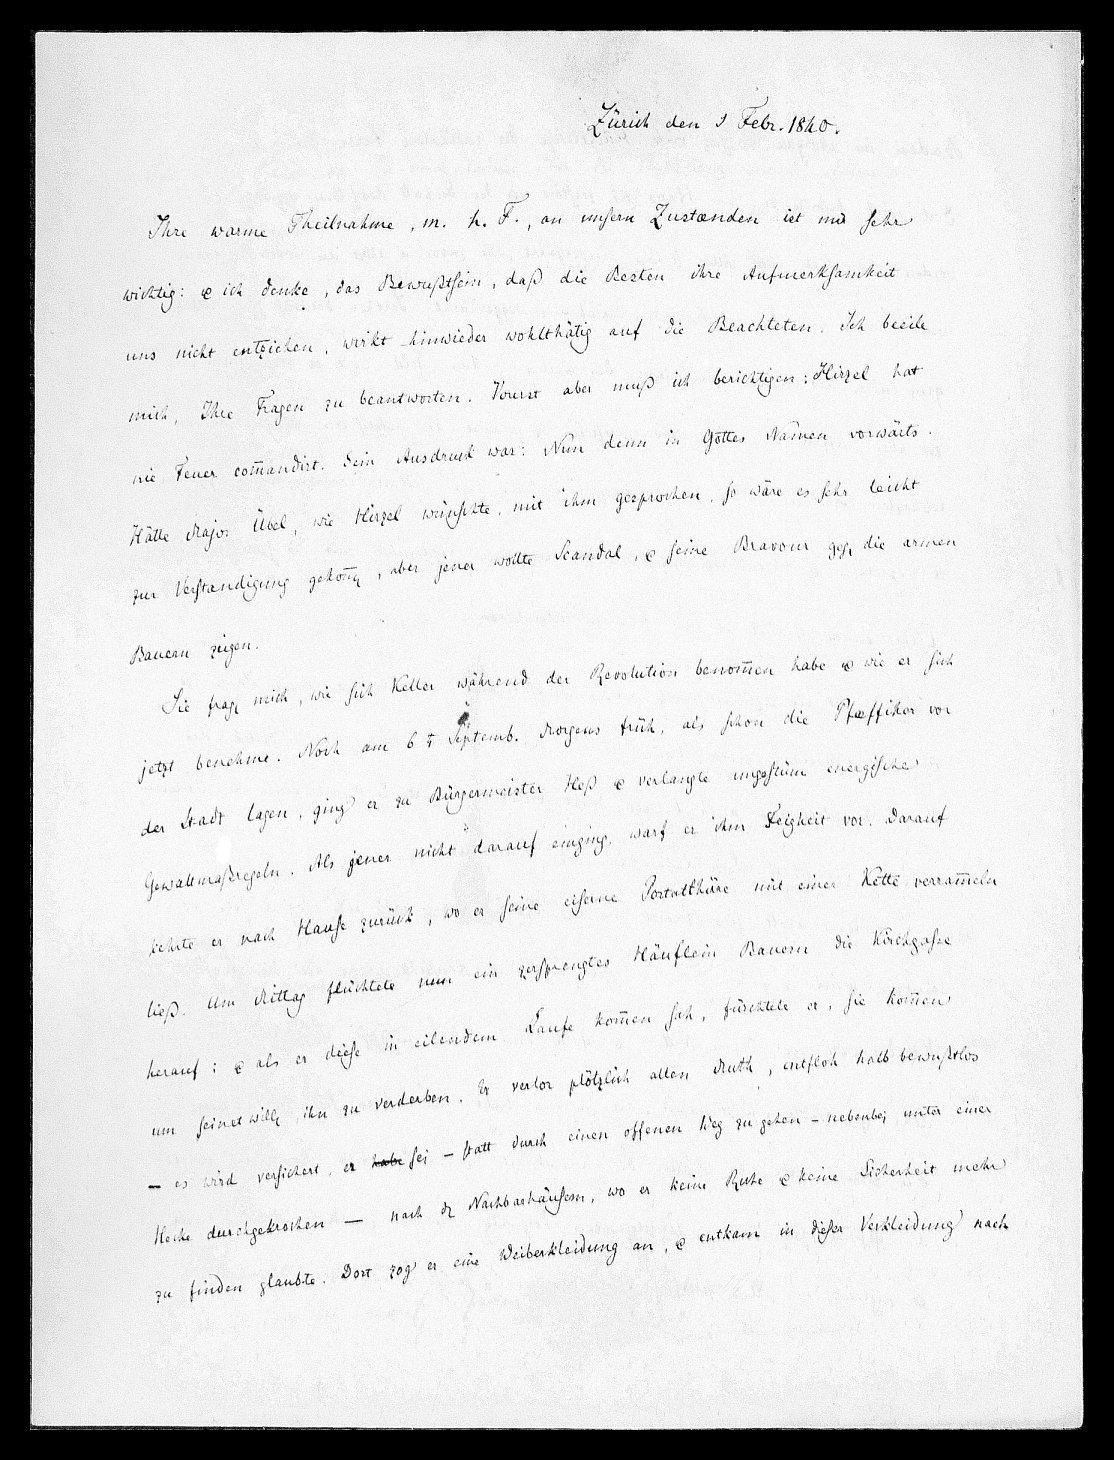 Zürich den 1 Febr. 1840.
Ihre warme Theilnahme, m. h. F., an unsern Zustænden ist mir sehr
wichtig: & ich denke, das Bewußtsein, daß die Besten ihre Aufmerksamkeit
uns nicht entziehen, wirkt hinwieder wohlthätig auf die Beachteten. Ich beeile
mich, Ihre Fragen zu beantworten. Vorerst aber muß ich berichtigen: Hirzel hat
nie Feuer com̄andirt. Sein Ausdruck war: Nun denn in Gottes Namen vorwärts.
Hätte Major Übel, wie Hirzel wünschte, mit ihm gesprochen, so wäre es sehr leicht
zur Verstandigung gekom̄, aber jener wollte Scandal, & seine Bravour geg die armen
Bauern zeigen.
Sie frag mich, wie sich Keller während der Revolution benom̄en habe & wie er sich
jetzt benehme. Noch am 6 t Septemb. Morgens früh, als schon die Pfæffiker vor
der Stadt lagen, ging er zu Bürgermeister Heß & verlangte ungestüm energische
Gewaltmaßregeln. Als jener nicht darauf einging, warf er ihm Feigheit vor. Darauf
kehrte er nach Hause zurück, wo er seine eiserne Portalthüre mit einer Kette verram̄eln
ließ. Um Mittag flüchtete nun ein zersprengtes Häuflein Bauern die Kirchgasse
herauf; & als er diese in eilendem Laufe kom̄en sah, fürchtete er, sie kom̄en
um seinet will, ihn zu verderben. Er verlor plötzlich allen Muth, entfloh halb bewußtlos
– es wird versichert, er habe sei – statt durch einen offenen Weg zu gehen – nebenbei unter einer
Hecke durchgekrochen — nach d Nachbarhäusern, wo er keine Ruhe & keine Sicherheit mehr
zu finden glaubte. Dort zog er eine Weiberkleidung an, & entkam in dieser Verkleidung nach